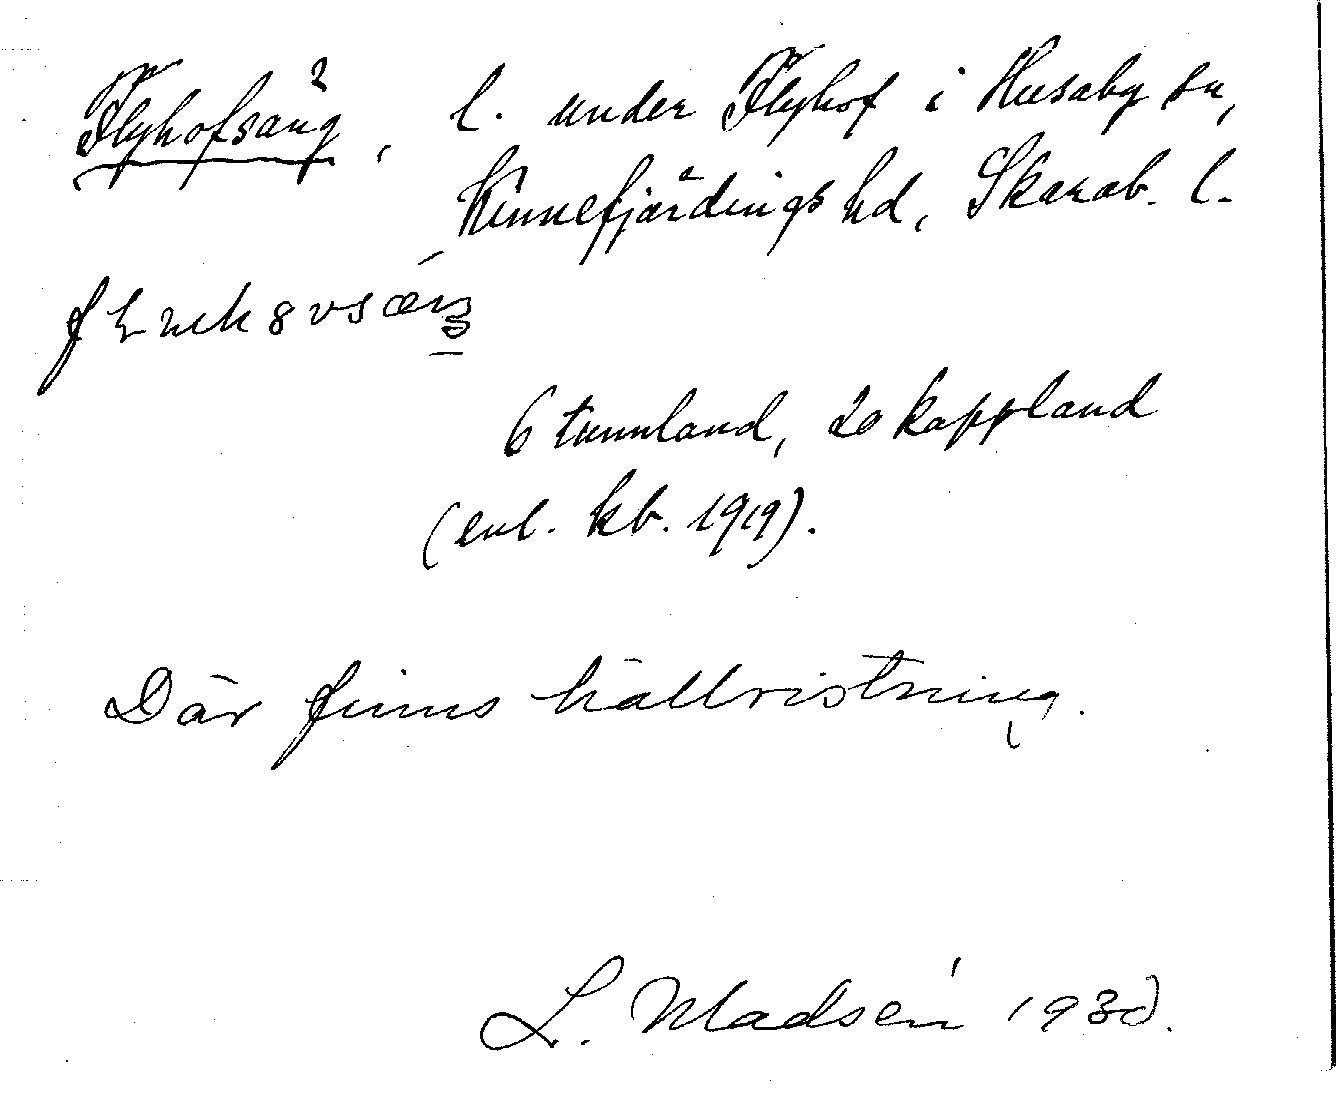 Flyhofsäng, l. under Flyhof i Husaby sn,
Kinnefjärdings hd, Skarab. l.
6 tunnland, 20 kappland
(enl. kb. 1919).
Där finns hällristning.
L. Madsén 1930.